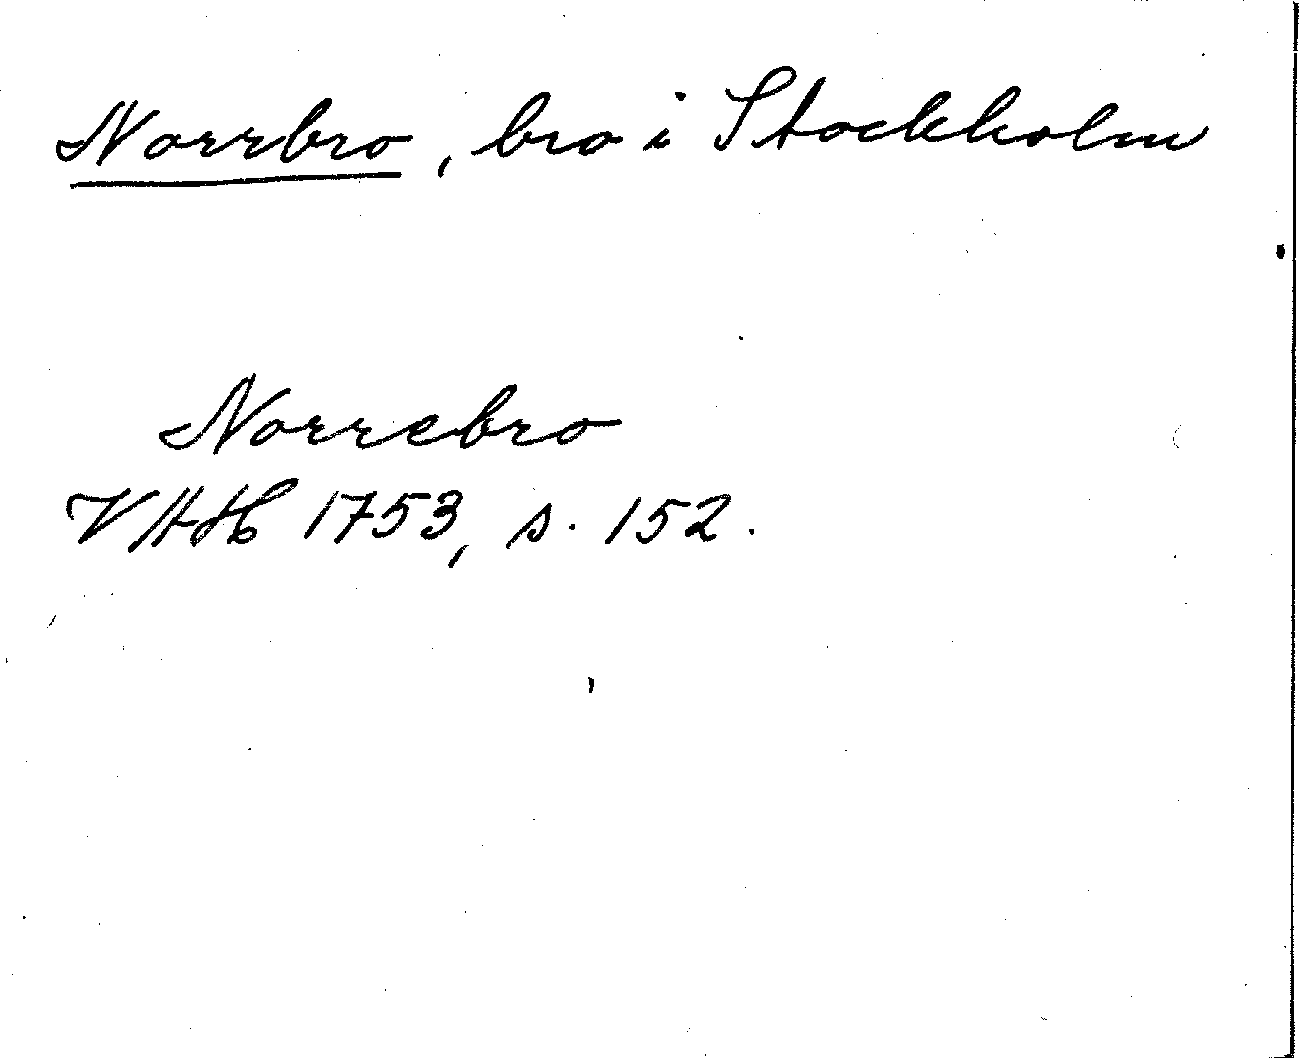 Norrbro, bro i Stockholm
Norrebro
VAH 1753, s. 152.